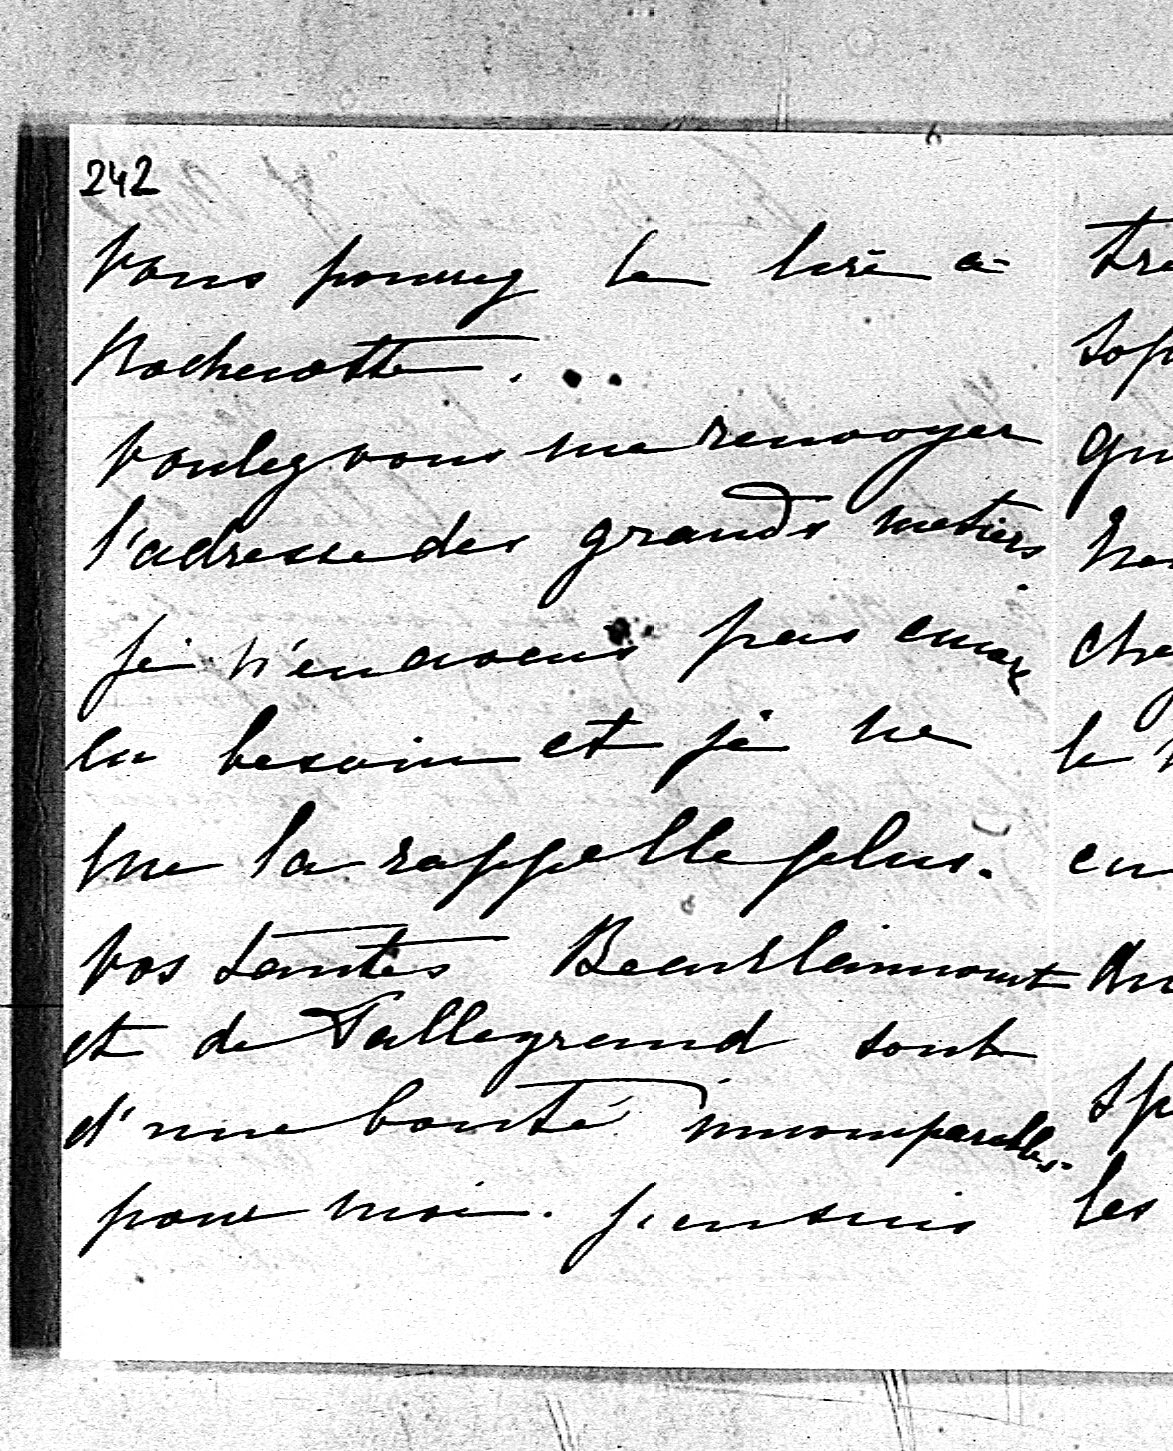 242
vous pourrez le lire à
Rochecotte...
voulez vous me renvoyer
l'adresse des grands metiers.
je n'en avais pas encore
eu besoin et je ne
me la rappelle plus.
vos tantes Beaurlaimont
et de Tallegrand sont
d'une bonté incomparable
pour moi. j'en suis
les